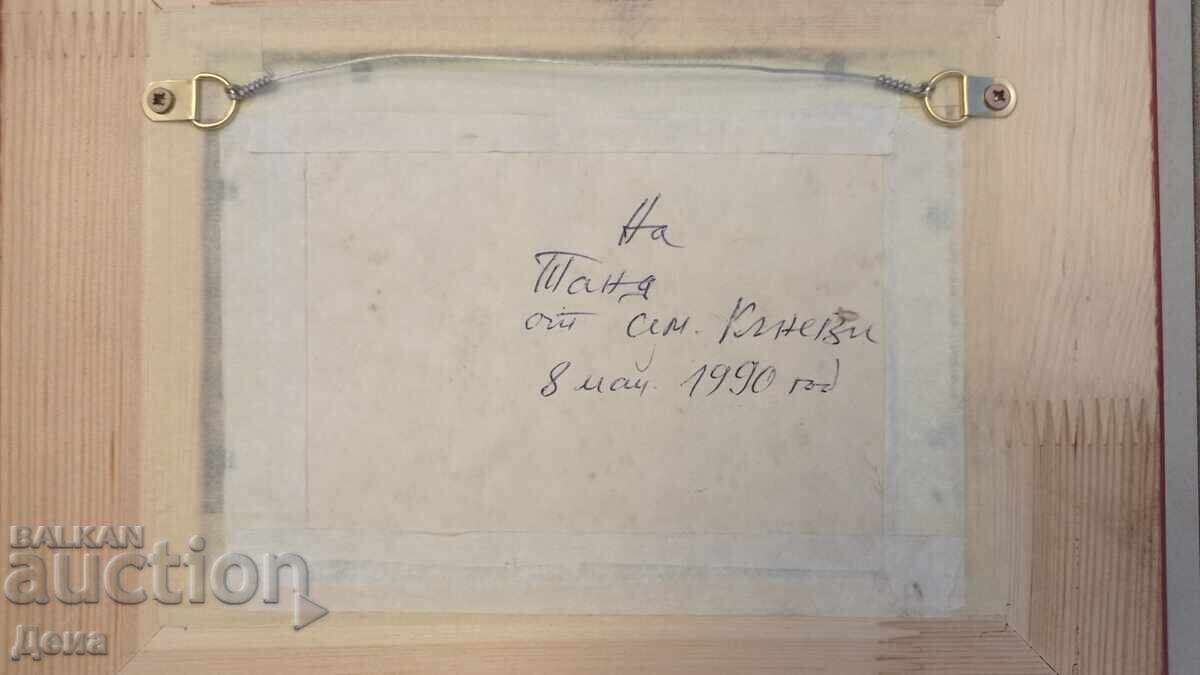 На
Таня
от сем. Къневи
8 май. 1990 год
BALKAN
auction
Деиа